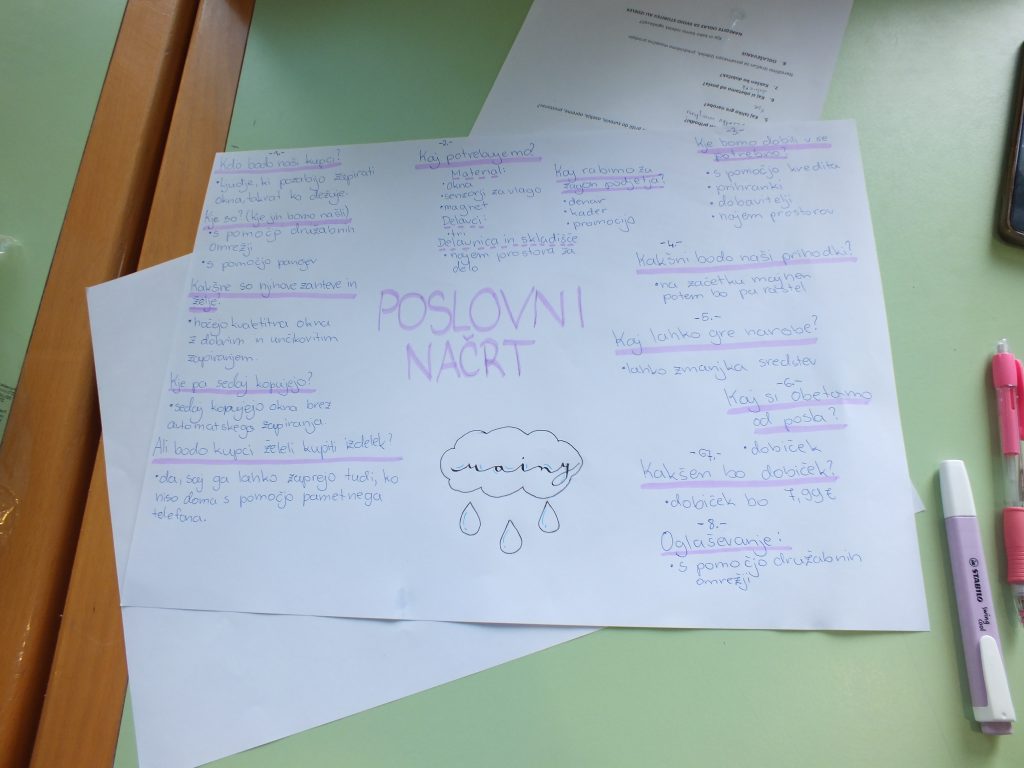 -1.-
Kdo bodo naši kupci?
•ljudje, ki pozabijo zapirati
okna takrat ko dežuje.
Kje so? (kje jih bomo našli)
•s pomočjo družabnih
omrežji
•s pomočjo panojev
Kakšne so njihove zahteve in
želje?
•hočejo kvalitetna okna
z dobrim in učinkovitim
zapiranjem.
Kje pa sedaj kupujejo?
•sedaj kupujejo okna brez
avtomatskega zapiranja.
Ali bodo kupci želeli kupiti izdelek?
•da, saj ga lahko zaprejo tudi, ko
niso doma s pomočjo pametnega
telefona.
-2.-
Kaj potrebujemo?
Material:
•okna
•senzorji za vlago
•magnet
Delavci:
•trije
Delavnica in skladišče
•najem prostora za
delo
Kaj rabimo za
zagon podjetja?
•denar
•kader
•promocijo
-3.-
Kje bomo dobili v se
potrebno?
•s pomočjo kredita
•prihranki
•dobavitelji
•najem prostorov
-4.-
Kakšni bodo naši prihodki?
•na začetku majhen
potem bo pa rastel
-5.-
Kaj lahko gre narobe?
•lahko zmanjka sredstev
-6.-
Kaj si obetamo
od posla?
•dobiček
-7.-
Kakšen bo dobiček?
•dobiček bo 7,99€
-8.-
Oglaševanje:
•s pomočjo družabnih
omrežji
POSLOVNI
NAČRT
rainy
NAREDITE OGLAS ZA SVOJO STORITEV ALI IZDELEK
8. OGLAŠEVANJE
7. Kakšen bo dobiček?
6. Kaj si obetamo od posla?
5. Kaj lahko gre narobe?
STABILO
swing
cool